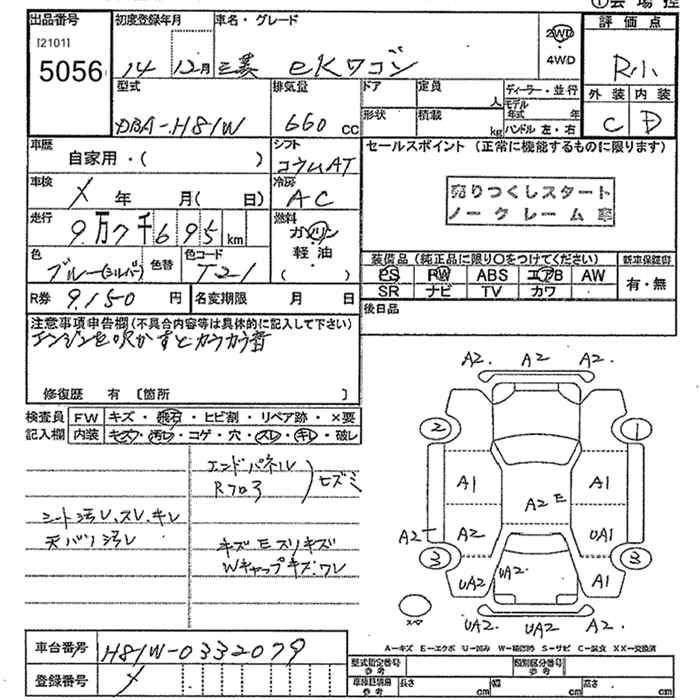 ①会場控
出品番号
[2101]
5056
初度登録年月
14
12月
車名・グレード
三菱 eKワゴン
2WD
・
4WD
評価点
R小
外装 内装
C D
型式
DBA-H81W
排気量
660 cc
ドア
定員
人
形状
積載
kg
ディーラー・並行
モデル年式 年
ハンドル 左・右
車歴
自家用・( )
シフト
コラムAT
車検
X 年 月( 日)
冷房
AC
走行
9万7千695km
燃料
ガソリン
軽油
( )
色
ブルー(シルバー)
色替
色コード
T21
R券 9,150 円
名変期限 月 日
セールスポイント (正常に機能するものに限ります)
売りつくしスタート
ノークレーム車
装備品 (純正品に限り○をつけてください)
新車保証書
PS PW ABS エアB AW
SR ナビ TV カワ
有・無
後日品
注意事項申告欄 (不具合内容等は具体的に記入して下さい)
エンジンを吹かすとカラカラ音
修復歴 有 〔箇所 〕
検査員
記入欄
FW キズ・飛石・ヒビ割・リペア跡・×要
内装 キズ・汚レ・コゲ・穴・スレ・キレ・破レ
エンドパネル
Rフロア
ヒズミ
シート汚レ、スレ、キレ
天バリ汚レ
キズ E スリキズ
Wキャップキズ、ワレ
A2. A2 A2.
2 1
A1 A1
A2 E
A2 A2 UA1
3 3
UA2 UA2 A1
スペ
UA2 UA2 A2.
A-キズ E-エクボ U-凹み W-補修跡 S-サビ C-腐食 XX-交換済
車台番号 H81W-0332079
登録番号 X
型式指定番号
参考
類別区分番号
参考
車検証数値
参考
長さ cm 幅 cm 高さ cm